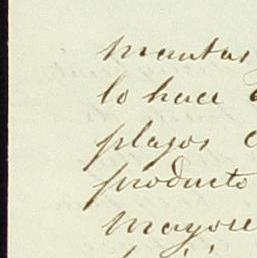 mantas
lo hace
plazos
producto
mayore